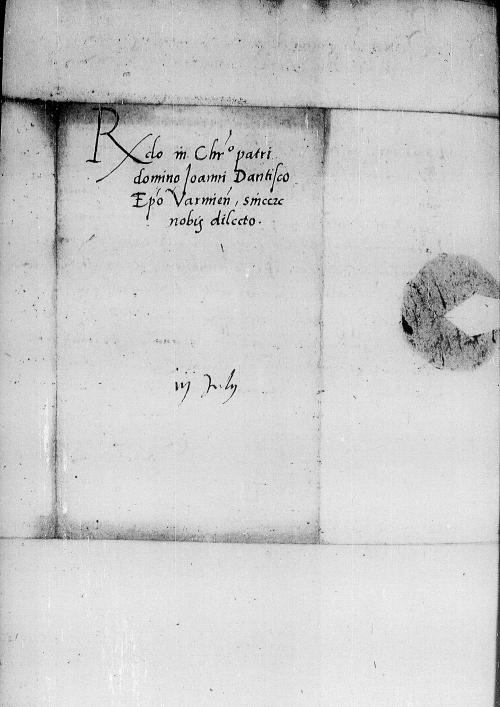 Rdo in Chro patri
domino Joanni Dantisco
Epo Varmien, sincere
nobis dilecto.
iij July